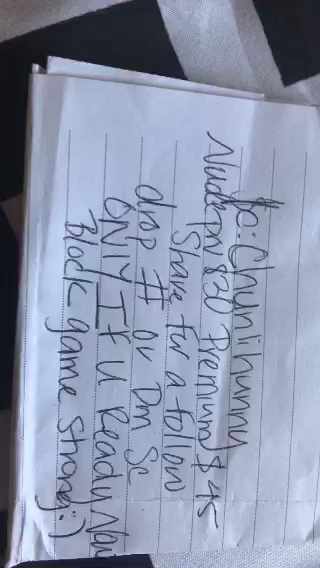 Sc: Chynlihunnu
Nudes $20 Premium $45
Share for a follow
drop # or Dm Sc
ONLY IF U Ready Now
Block game strong :)